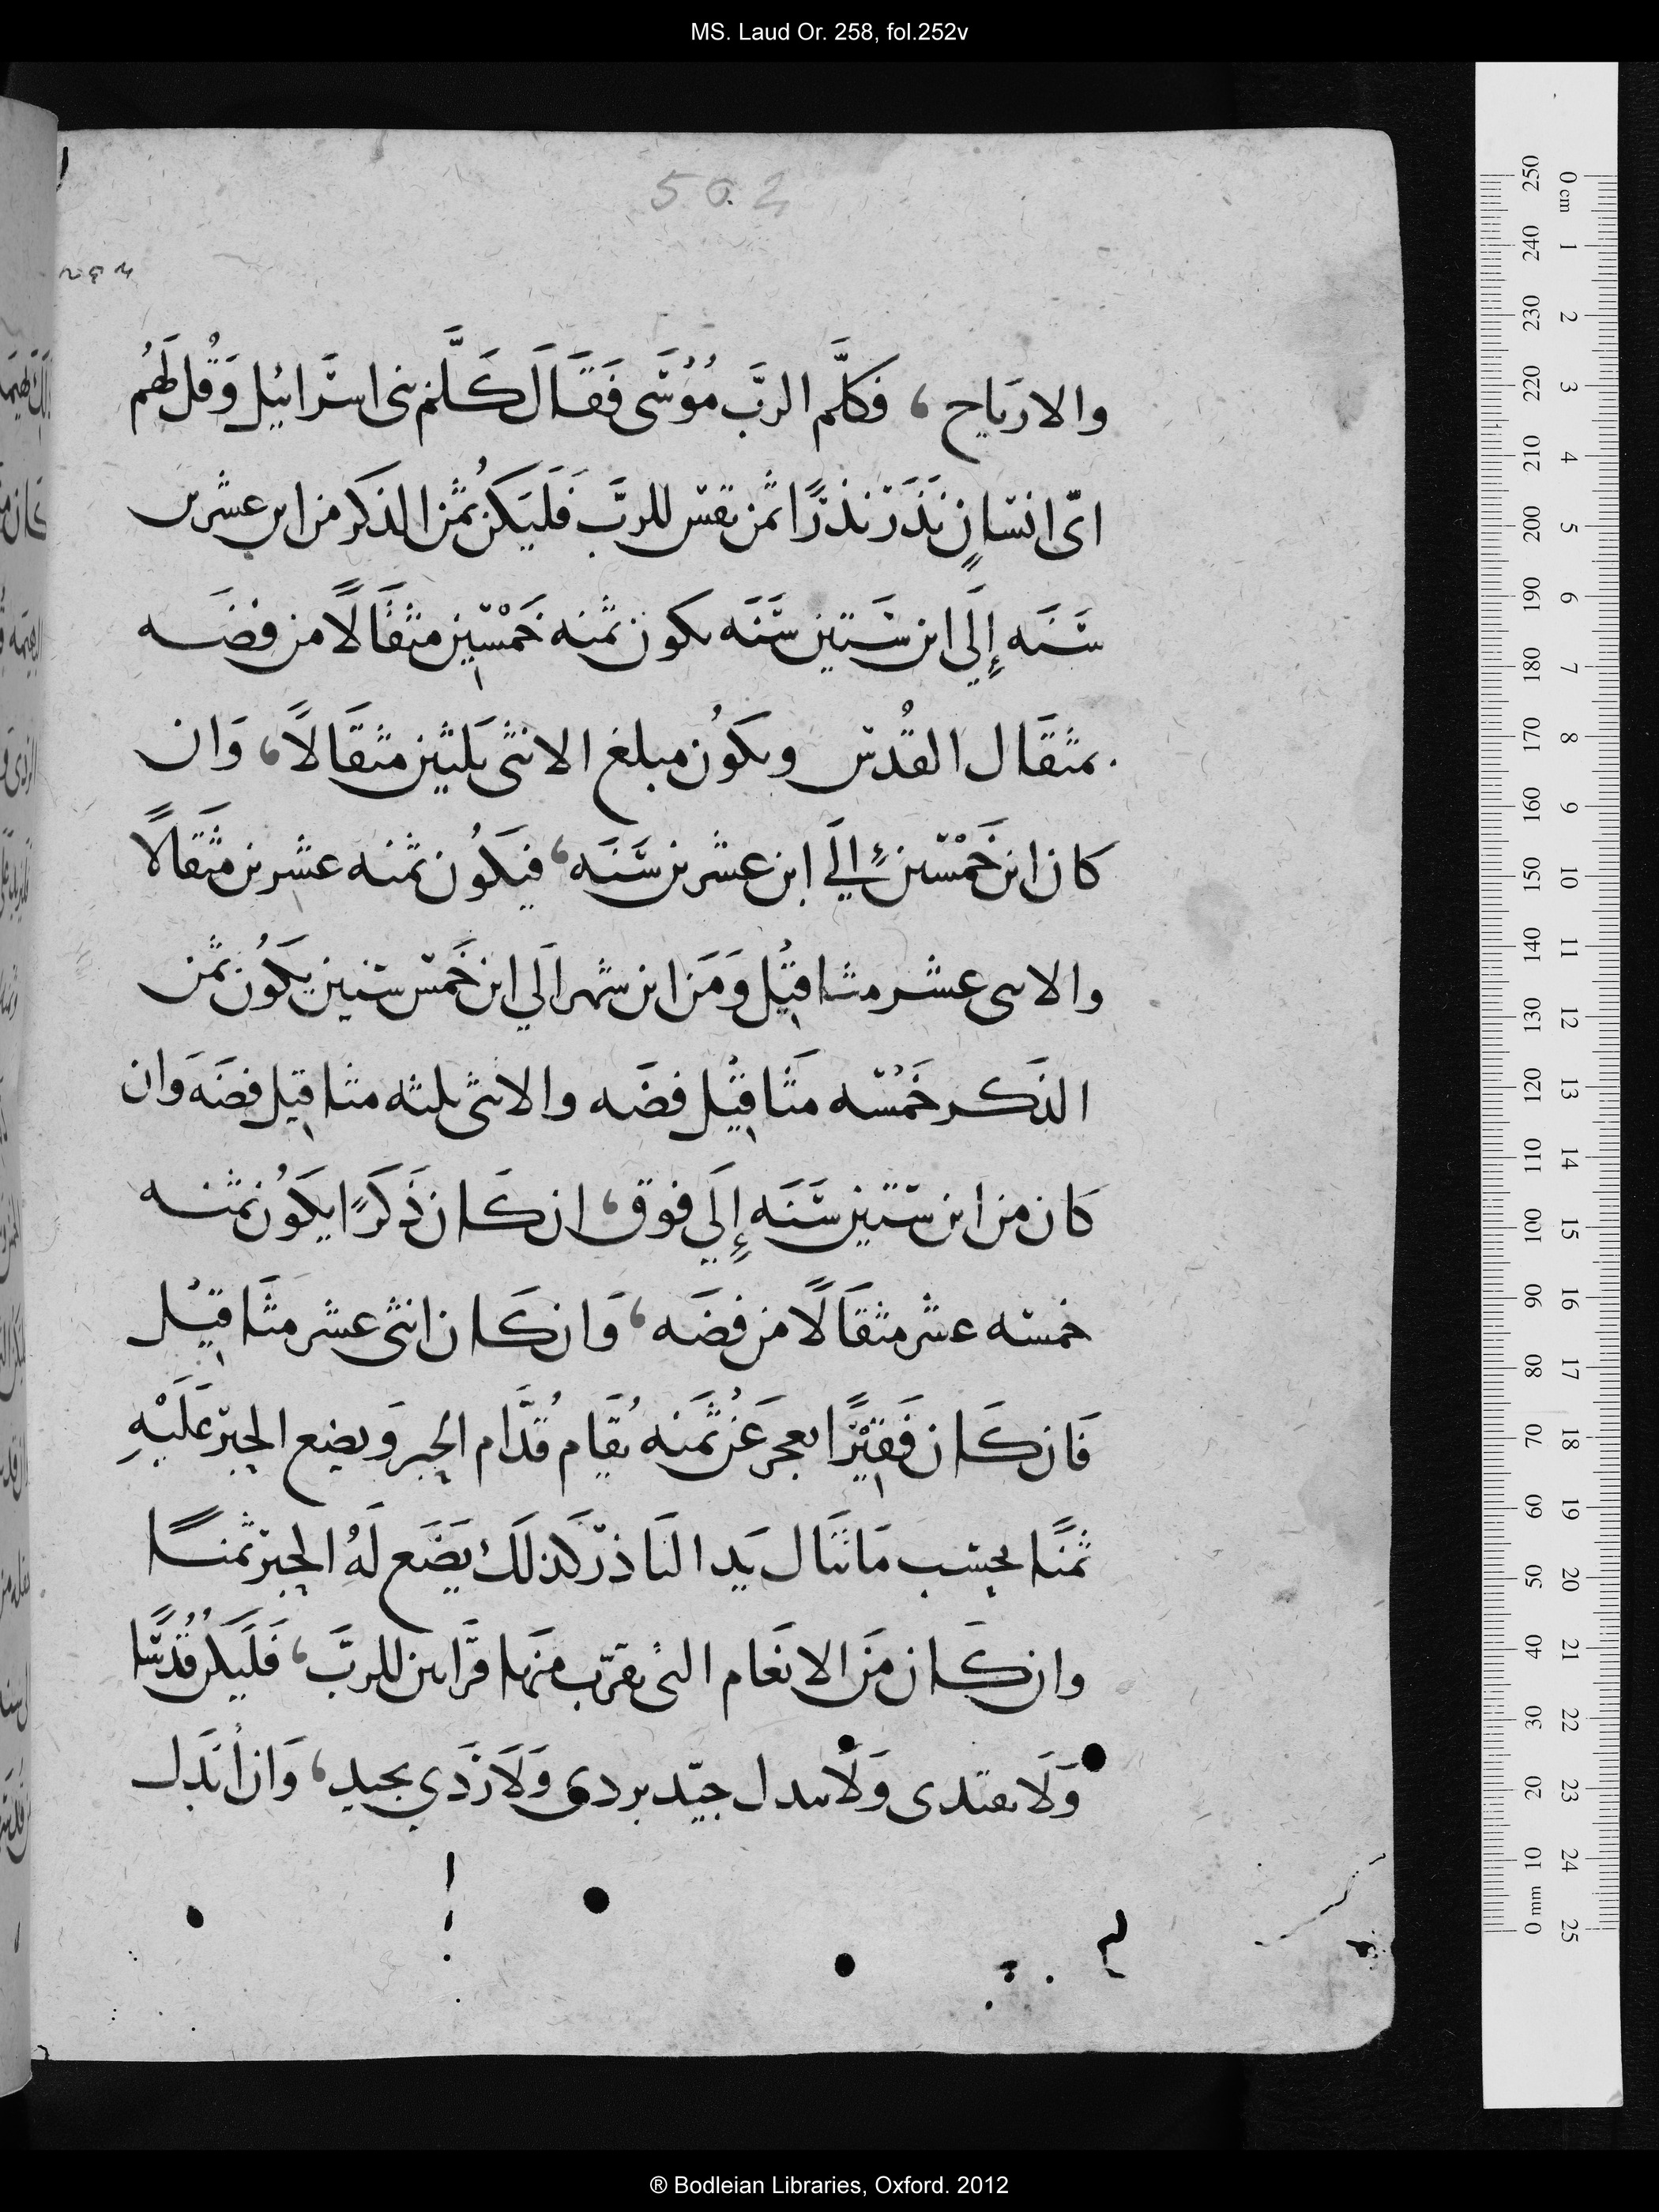 MS. Laud Or. 258, fol.252v
502
والارياح ، فكلَّم الربَّ مُوُسَى فَقَالَ كَلَّم بنى اسرائيل وَقُل لَهُم
اىّ انسانٍ نَذَرَ نذرًا ثمن نفس للربَّ فَليَكن ثمُن الذكر من ابن عشرين
سَنَه إِلَي ابن سَتين سَنَه يكون ثمنه خَمْسين مثقَالًا من فضَه
بمثقال القُدس ويكوُن مبلغ الانثى ثلثين مثقَالاً، وَان
كان ابن خَمْس سنين الَي ابن عشرين سَنَه، فيكوُن ثمنه عشرين مثقَالًا
والانثى عشر مثاقيل وَمَن ابن شهر الَي ابن خَمس سنين يكَوُن ثمن
الذَكر خَمُسه مثَاقيل فضَه والانثى ثلثه مثاقيل فضَه وان
كان من ابن ستين سَنَه إِلَي فوق، ان كَان ذَكرًا يكَوُن ثمنه
خمسه عشر مثقَالًا من فضَه، وَان كَان انثى عشر مثَاقيل
فَان كَان فَقيْرًا يعجز عَن ثُمَنه يُقَام قُدَّام الحبر وَيضع الحبر عَلَيْهِ
ثمنًا بحسَب مَا تنَال يَد النَاذر كذلَك يَضَع لَهُ الحبر ثمنًا
وان كَان مَن الانعَام التى يقرّب منَها قرَابين للربَّ، فَليَكن قُدسًا
وَلَا يفتدى وَلَا يبدل جيّد بردى وَلَا رَدَي بجيد، وَان أُبَدل
® Bodleian Libraries, Oxford. 2012